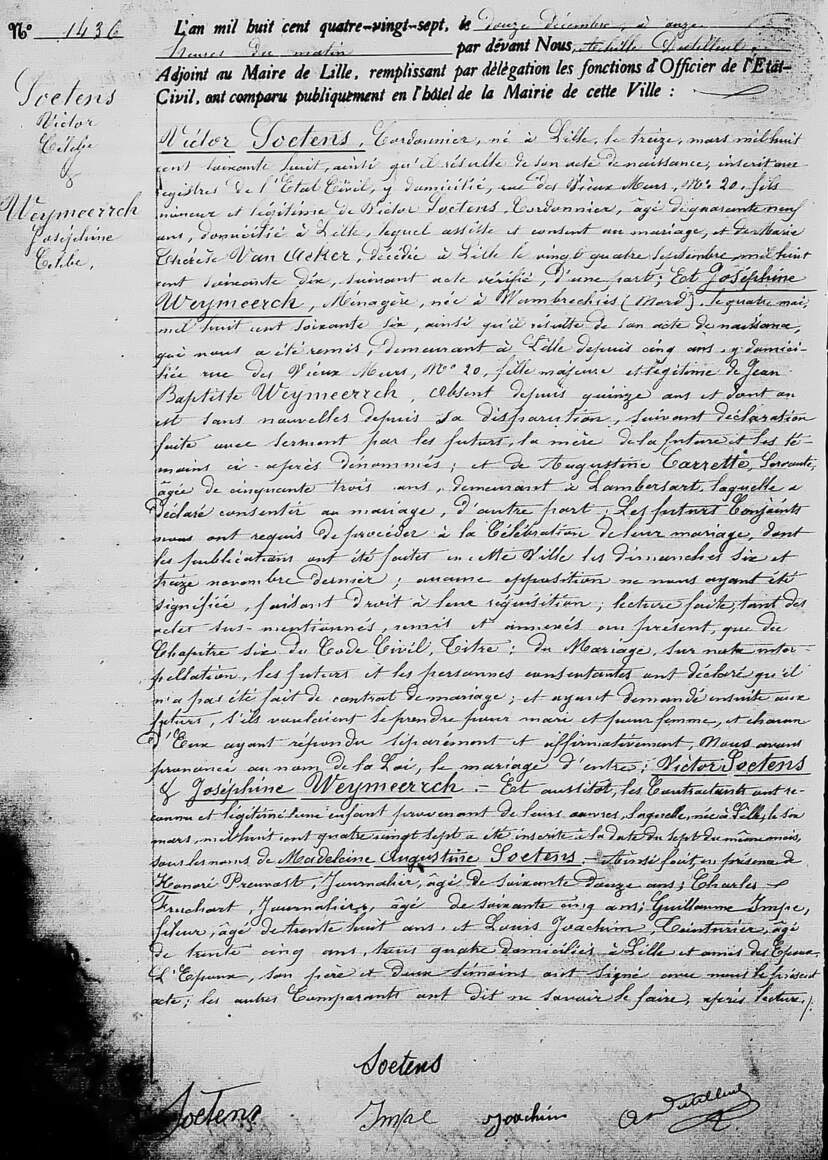 N° 1436
L'an mil huit cent quatre-vingt-sept, le douze décembre, à onze
heures du matin par dévant Nous, Achille Dutilleul,
Adjoint au Maire de Lille, remplissant par délégation les fonctions d'Officier de l'État-
Civil, ont comparu publiquement en l'hôtel de la Mairie de cette Ville :
Soetens
Victor
Célibe
&
Weymeerrch
Joséphine
Célibe.
Victor Soetens, Cordonnier, né à Lille, le treize, mars mil huit
cent soixante huit, ainsi qu'il résulte de son acte de naissance, inscrit aux
registres de l'État Civil, y domicilié, rue des Vieux Murs, N° 20, fils
mineur et légitime de Victor Soetens, Cordonnier, âgé de quarante neuf
ans, domicilié à Lille, lequel assiste et consent au mariage, et de Marie
Thérèse Van Acker, décédée à Lille le vingt quatre Septembre mil huit
cent soixante dix, suivant acte vérifié, d'une part; Et Joséphine
Weymeerch, Ménagère, née à Wambrechies (Nord), le quatre mai,
mil huit cent soixante six, ainsi qu'il résulte de son acte de naissance,
qui nous a été remis, demeurant à Lille depuis cinq ans, y domici-
liée rue des Vieux Murs, N° 20, fille majeure et légitime de Jean
Baptiste Weymeerrch, absent depuis quinze ans et dont on
est sans nouvelles depuis sa disparution, suivant déclaration
faite avec serment par les futurs, la mère de la future et les té-
moins ci-après dénommés; et de Augustine Carrette, Servante,
âgée de cinquante trois ans, demeurant à Lambersart, laquelle a
déclaré consentir au mariage, d'autre part; Les futurs Conjoints
nous ont requis de procéder à la Célébration de leur mariage, dont
les publications ont été faites en cette Ville les dimanches six et
treize novembre dernier; aucune opposition ne nous ayant été
signifiée, faisant droit à leur réquisition; lecture faite, tant des
actes sus-mentionnés, remis et annexés au présent, que du
Chapitre six du Code Civil, Titre: du Mariage, sur notre inter-
pellation, les futurs et les personnes consentantes ont déclaré qu'il
n'a pas été fait de contrat de mariage; et ayant demandé ensuite aux
futurs, s'ils voulaient se prendre pour mari et pour femme, et chacun
d'Eux ayant répondu séparément et affirmativement, Nous avons
prononcé au nom de la Loi, le mariage d'entre; Victor Soetens
& Joséphine Weymeerrch. — Et aussitôt, les Contractants ont re-
connu et légitimé une enfant provenant de leurs œuvres, laquelle, née à Lille, le six
mars, mil huit cent quatre vingt sept a été inscrite à la date du sept du même mois,
sous les noms de Madeleine Augustine Soetens. — Ainsi fait en présence de
Honoré Preuvost, Journalier, âgé de soixante douze ans; Charles
Fruchart, Journalier, âgé de soixante cinq ans; Guillaume Impe,
fileur, âgé de trente huit ans, et Louis Joachim, Teinturier, âgé
de trente cinq ans, tous quatre domiciliés à Lille et amis des Epoux.
L'Epoux, son père et deux témoins ont signé avec nous le présent
acte; les autres Comparants ont dit ne savoir le faire, après lecture.
Soetens
Soetens Impe Joachim A Dutilleul